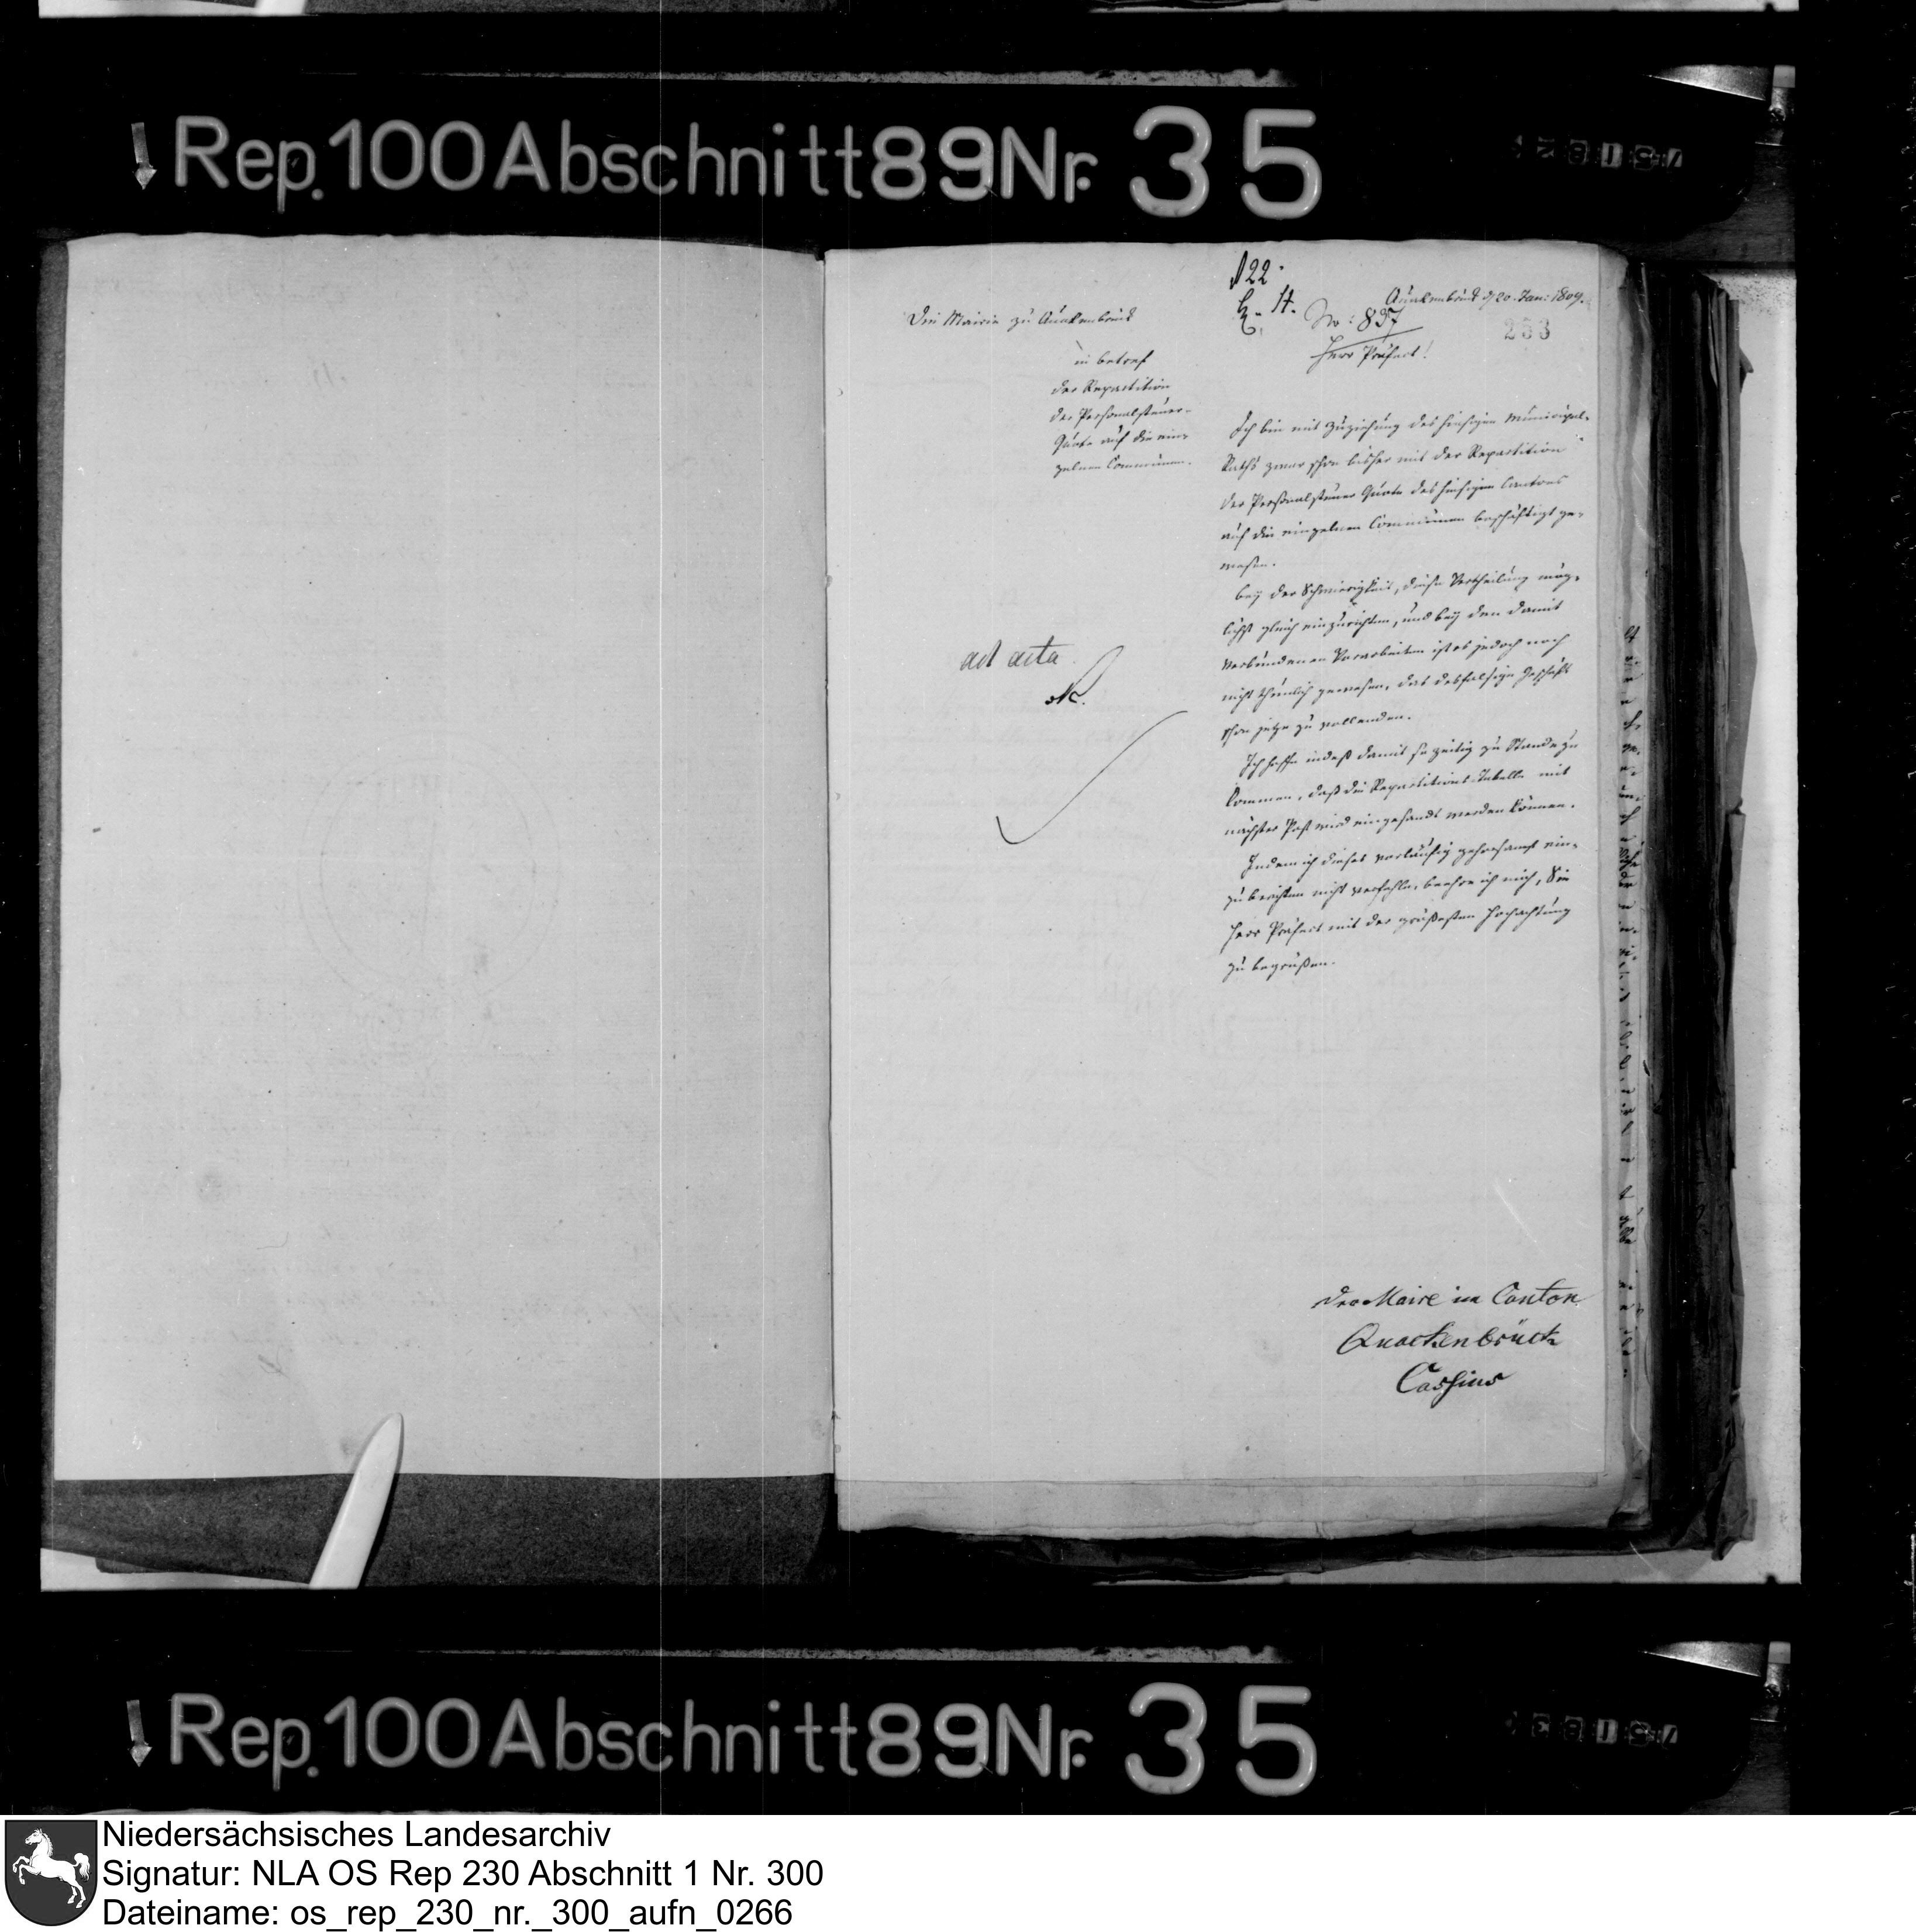 Rep. 100 Abschnitt 89 Nr. 35
№ 22.
Quakenbrück d 20. Jan: 1809.
Die Mairie zu Quakenbrück
No: 837
253
Herr Präfect!
in betref
der Repartition
der Personalsteuer-
Quote auf die ein-
zelnen Communen.
Ich bin mit Zuziehung des hiesigen Municipal-
Raths zwar schon bisher mit der Repartition
der Personalsteuer Quote des hiesigen Cantons
auf die einzelnen Communen beschäftigt ge-
wesen.
bey der Schwierigkeit, diese Vertheilung mög-
lichst gleich einzurichten, und bey den damit
verbundenen Vorarbeiten ist es jedoch noch
nicht thunlich gewesen, das desfalsige Geschäft
schon jetzo zu vollenden.
Ich hoffe indeß damit so zeitig zu Stande zu
kommen, daß die Repartitions-Tabelle mit
nächster Post wird eingesandt werden können.
Indem ich dieses vorläufig gehorsamst ein-
zuberichten nicht verfehle, beehre ich mich, Sie
Herr Präfect mit der größesten Hochachtung
zu begrüßen.
ad acta
Der Maire im Canton
Quackenbrück
Cassius
Rep. 100 Abschnitt 89 Nr. 35
Niedersächsisches Landesarchiv
Signatur: NLA OS Rep 230 Abschnitt 1 Nr. 300
Dateiname: os_rep_230_nr._300_aufn_0266